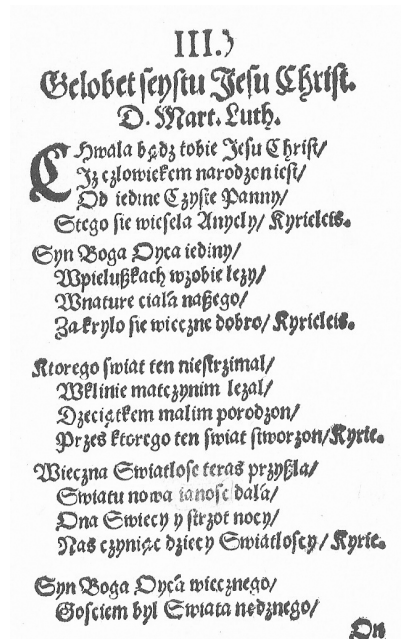 III.)
Gelobet seystu Jesu Christ.
D. Mart. Luth.
CHwala bądz tobie Jesu Christ/
Jz czlowiekem narodzon iest/
Od iedine Czyste Panny/
Stego sie wiesela Anyely/ Kyrieleis.
Syn Boga Oyca iediny/
Wpielußkach wzobie lezy/
Wnature ciala naßego/
Zakrylo sie wieczne dobro/ Kyrieleis.
Ktorego swiat ten niestrzimal/
Wklinie matczynim lezal/
Dzeciątkem malim porodzon/
Przes ktorego ten swiat stworzon/ Kyrie.
Wieczna Swiatlosc teras przyßla/
Swiatu nowa ianosc dala/
Ona Swiecy y strzot nocy/
Nas czyniąc dziecy Swiatloscy/ Kyrie.
Syn Boga Oyca wiecznego/
Gosciem byl Swiata nędznego/
On